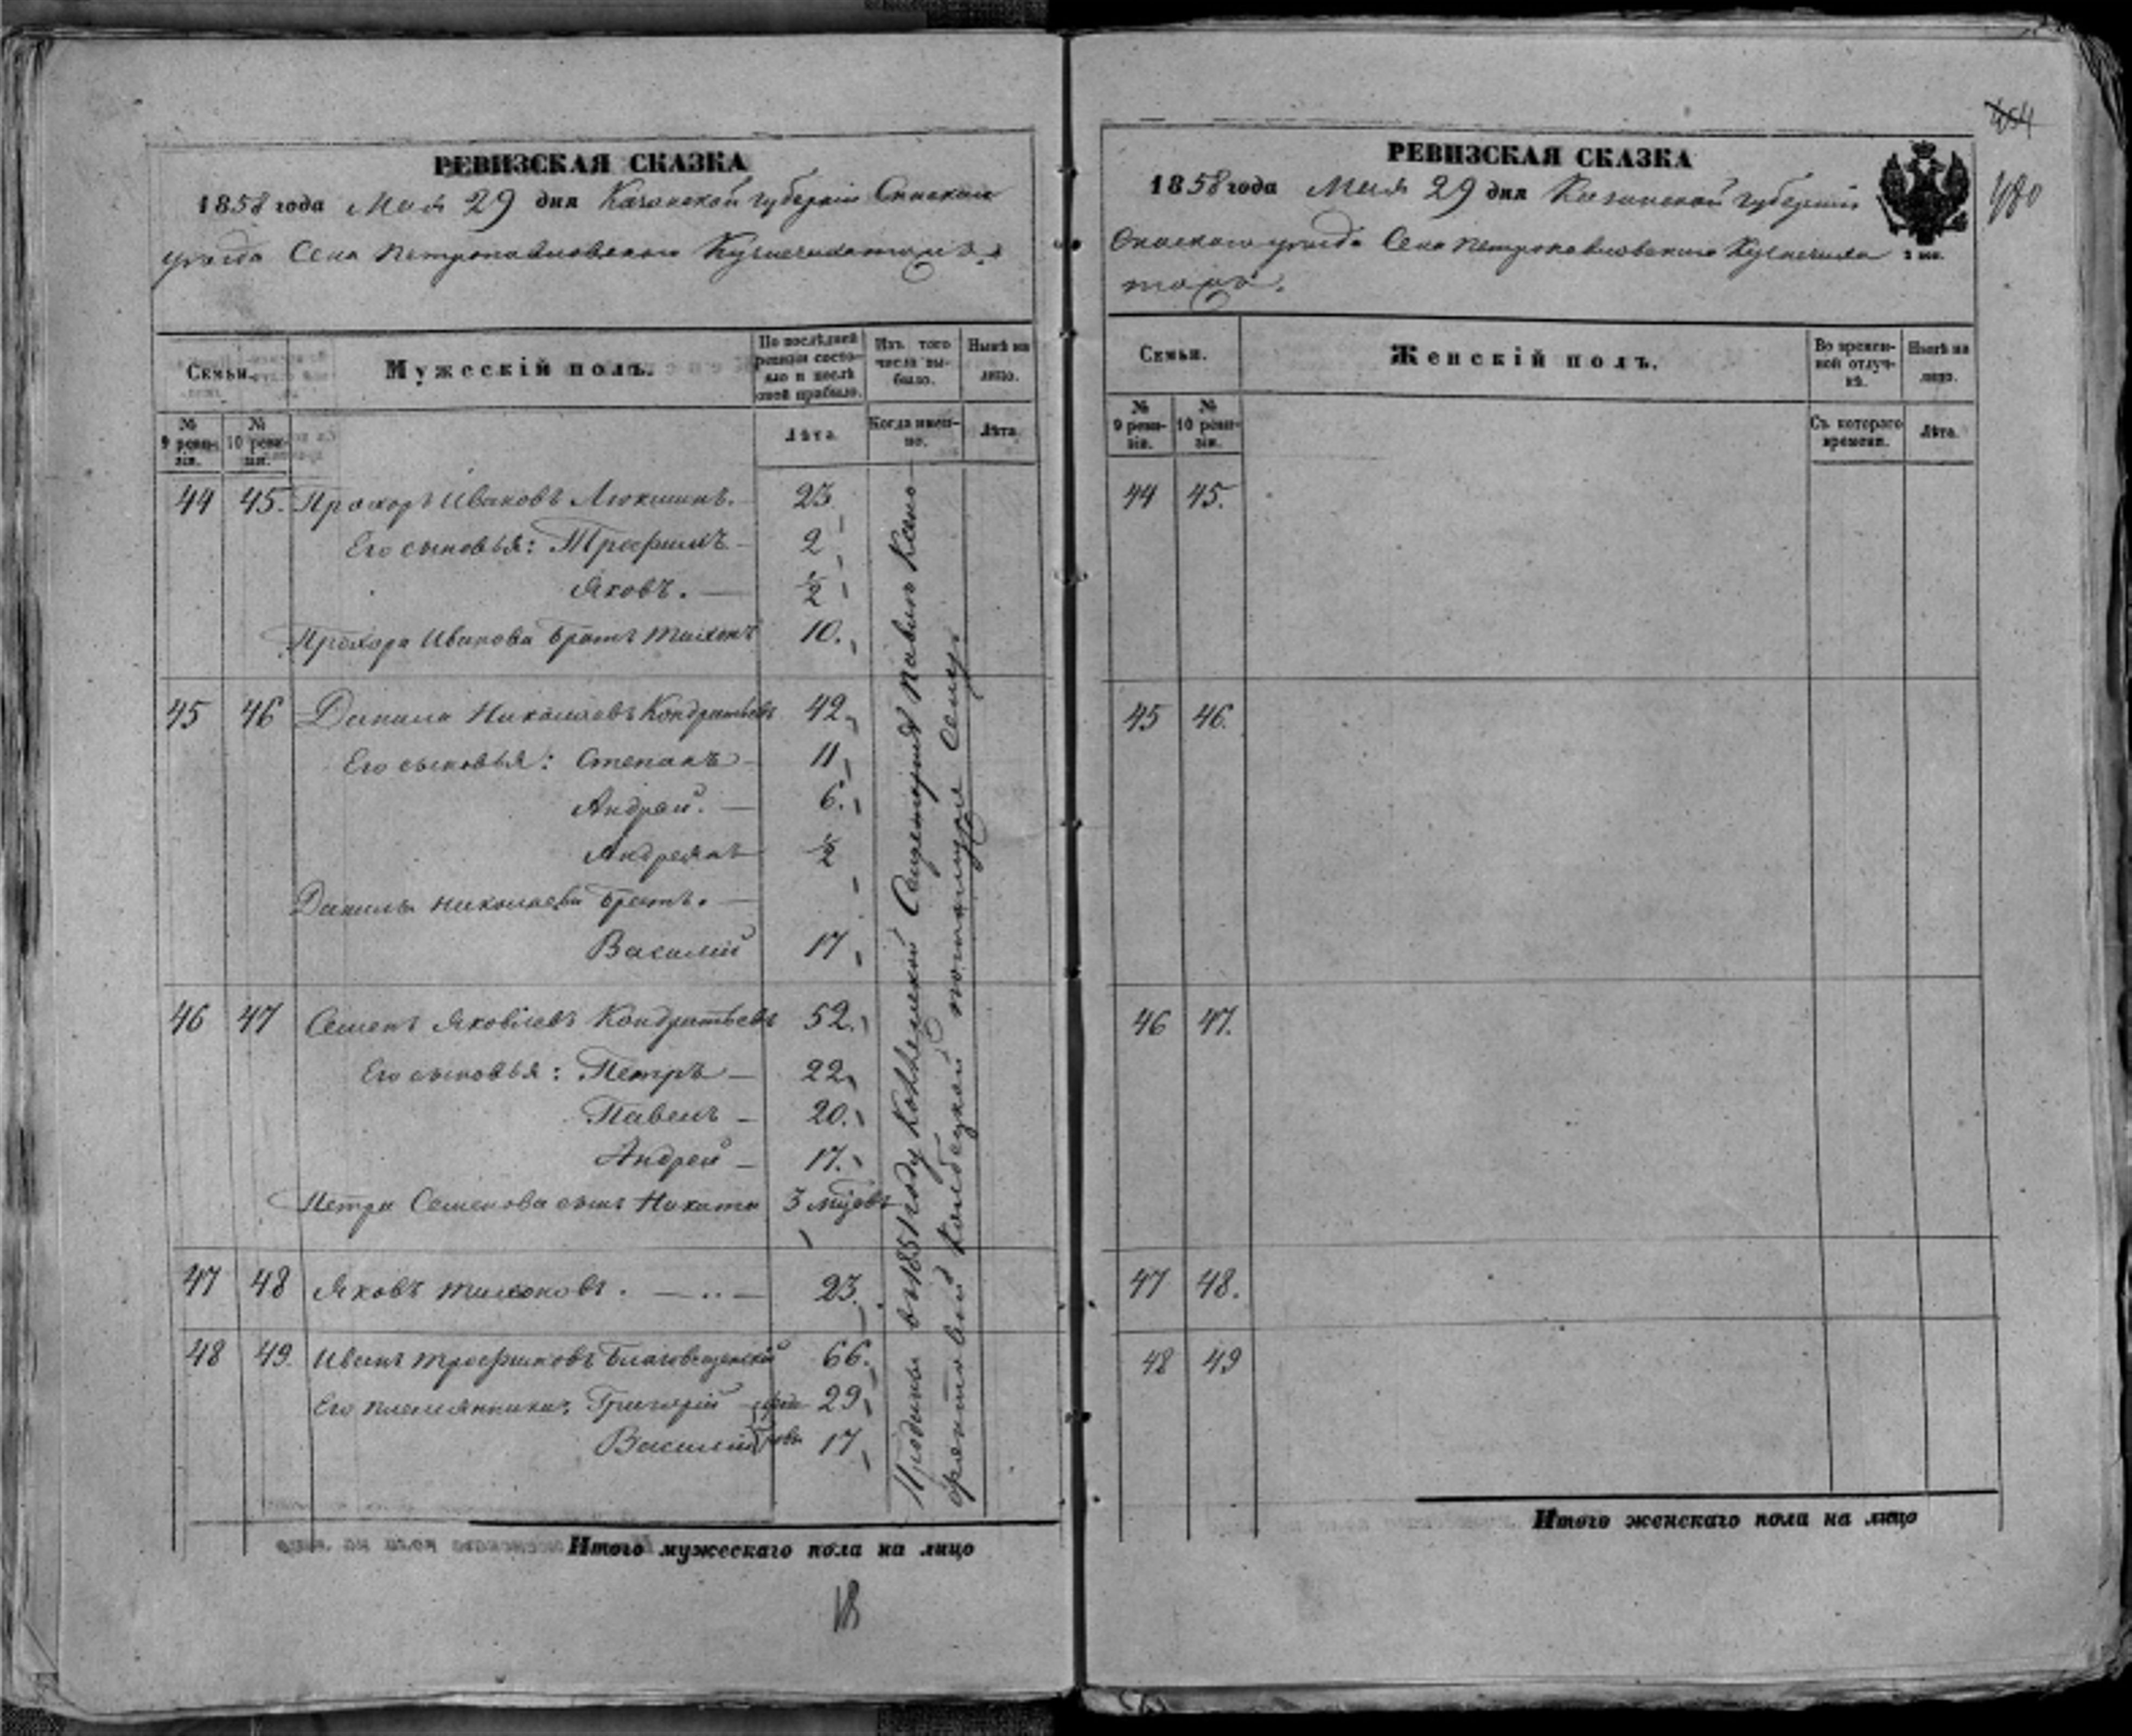 РЕВИЗСКАЯ СКАЗКА
1858 года Мая 29 дня Казанской губерніи Спаскаго
уѣзда Села Петропавловскаго Кузнечиха тожъ.
Семьи.
Мужескій полъ.
По послѣдней ревизіи состояло и послѣ оной прибыло.
Изъ того числа выбыло.
Нынѣ на лицо.
№ 9 ревизіи.
№ 10 ревизіи.
Лѣта.
Когда именно.
Лѣта.
44 45. Прохоръ Ивановъ Люкшинъ. 23
Его сыновья: Трофимъ 2
Яковъ. ½
Прохора Иванова братъ Тихонъ 10.
45 46 Данила Николаевъ Кондратьевъ 42
Его сыновья: Степанъ 11
Андрей. 6.
Андреянъ ½
Данилы Николаева братъ.
Василій 17
46 47 Семенъ Яковлевъ Кондратьевъ 52.
Его сыновья: Петръ 22
Павелъ 20.
Андрей 17.
Петра Семенова сынъ Никита 3 мѣс
47 48 Яковъ Тихоновъ. 23.
48 49 Иванъ Трофимовъ Благовещенскій 66.
Его племянники: Григорій 29
Василій 17
Проданы въ 1851 году
Итого мужескаго пола на лицо
18
РЕВИЗСКАЯ СКАЗКА
1858 года Мая 29 дня Казанской губерніи
Спаскаго уѣзда Села Петропавловскаго Кузнечиха
тожъ.
454
480
Семьи.
Женскій полъ.
Во временной отлучкѣ.
Нынѣ на лицо.
№ 9 ревизіи.
№ 10 ревизіи.
Съ котораго времени.
Лѣта.
44 45.
45 46.
46 47.
47 48.
48 49
Итого женскаго пола на лицо